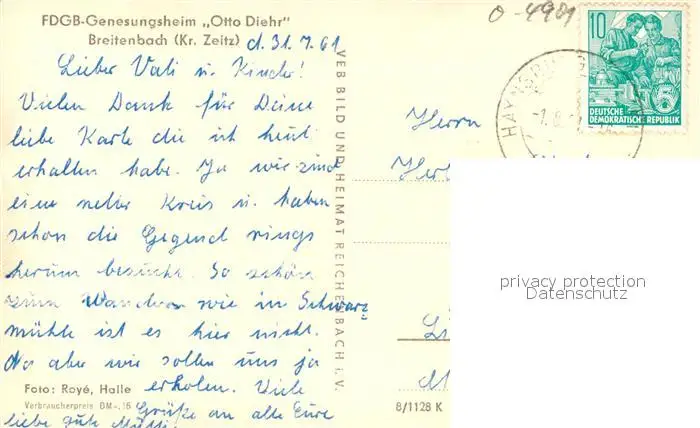 FDGB-Genesungsheim „Otto Diehr"
Breitenbach (Kr. Zeitz) d. 31.7.61
Lieber Vati u. Kinder!
Vielen Dank für Deine
liebe Karte die ich heut
erhalten habe. Ja wir sind
ein netter Kreis u. haben
schon die Gegend rings
herum besucht. So schön
zum Wandern wie in Schwarz
mühle ist es hier nicht.
Na aber wir sollen uns ja
erholen. Viele
Grüße an alle Eure
liebe gute Mutti
Foto: Royé, Halle
Verbraucherpreis DM -,15
VEB BILD UND HEIMAT REICHENBACH i. V.
8/1128 K
0-4901
10
DEUTSCHE
DEMOKRATISCHE REPUBLIK
5
HAYNSBU
-1.8.
Herrn
Her
privacy protection
Datenschutz